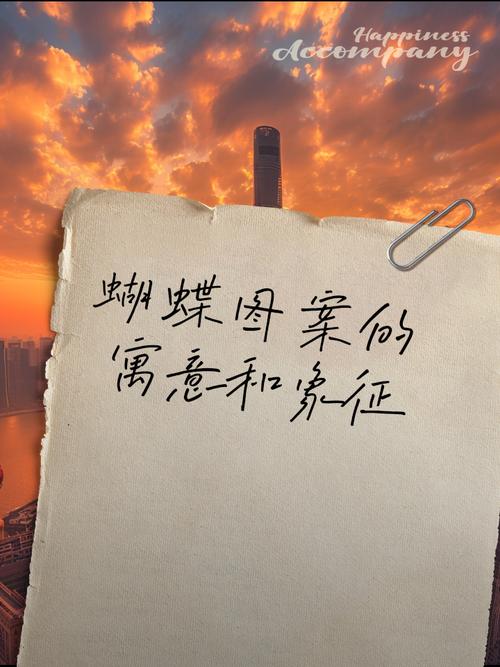 Happiness
Accompany
蝴蝶图案的
寓意和象征